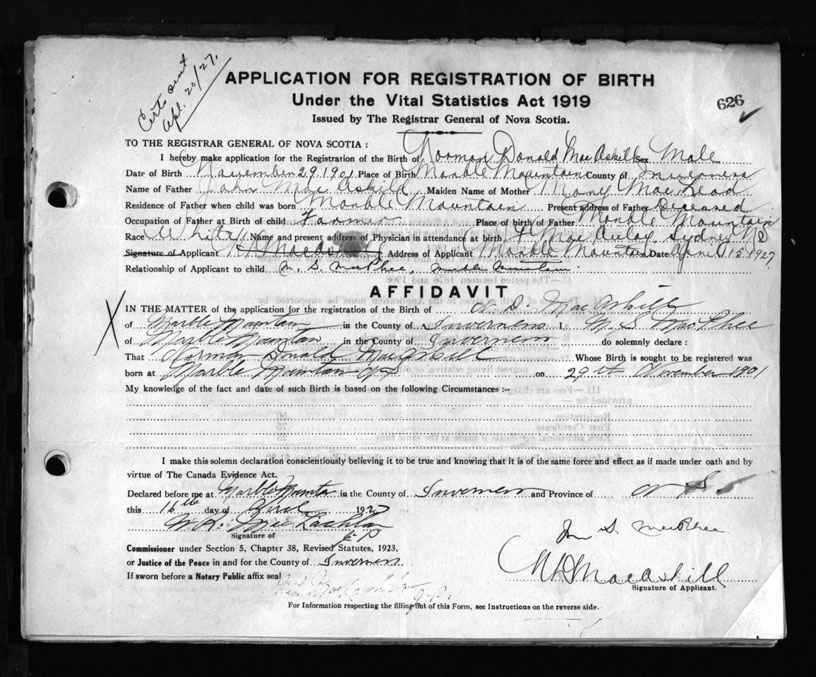 Certs sent
Apl. 20/27.
APPLICATION FOR REGISTRATION OF BIRTH
Under the Vital Statistics Act 1919
626
Issued by The Registrar General of Nova Scotia.
TO THE REGISTRAR GENERAL OF NOVA SCOTIA :
I hereby make application for the Registration of the Birth of Norman Donald MacAskill Sex Male
Date of Birth November 29. 1901 Place of Birth Marble Mountain County of Inverness
Name of Father John MacAskill Maiden Name of Mother Mary MacLeod
Residence of Father when child was born Marble Mountain Present address of Father Deceased
Occupation of Father at Birth of child Farmer Place of birth of Father Marble Mountain
Race White Name and present address of Physician in attendance at birth MacAulay Sydney N S
Signature of Applicant Address of Applicant Marble Mountain Date April 15 1927
Relationship of Applicant to child M. S. MacPhee, Marble Mountain.
AFFIDAVIT
X
IN THE MATTER of the application for the registration of the Birth of N. D. MacAskill
of Marble Mountain in the County of Inverness I, M. S. MacPhee
of Marble Mountain in the County of Inverness do solemnly declare :
That Norman Donald MacAskill Whose Birth is sought to be registered was
born at Marble Mountain on 29th November 1901
My knowledge of the fact and date of such Birth is based on the following Circumstances :-
I make this solemn declaration conscientiously believing it to be true and knowing that it is of the same force and effect as if made under oath and by
virtue of The Canada Evidence Act.
Declared before me at Marble Mountn in the County of Inverness and Province of N S
this 16th day of April 1927
MacLachlan
J.P.
Signature of
MacPhee
Commissioner under Section 5, Chapter 38, Revised Statutes, 1923,
or Justice of the Peace in and for the County of Inverness
If sworn before a Notary Public affix seal
N D MacAskill
Signature of Applicant.
For Information respecting the filling out of this Form, see Instructions on the reverse side.